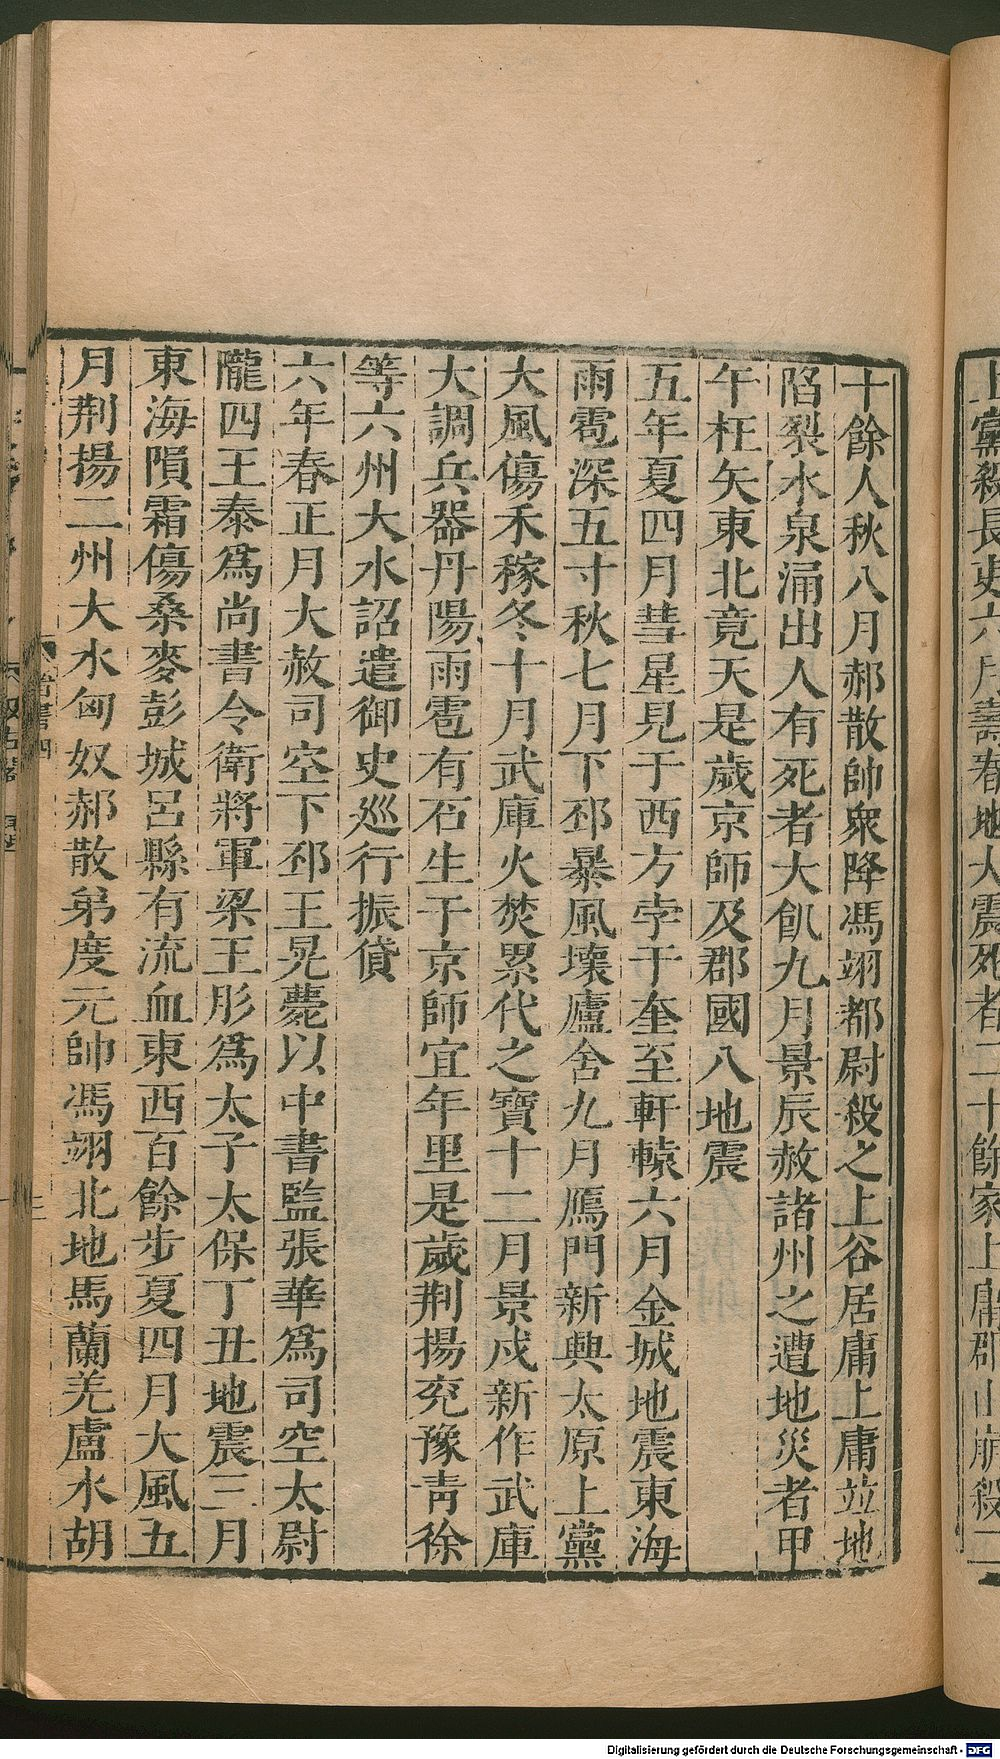 十餘人秋八月郝散帥衆降馮翊都尉殺之上谷居庸上庸竝地
陷裂水泉涌出人有死者大飢九月景辰赦諸州之遭地災者甲
午枉矢東北竟天是歲京師及郡國八地震
五年夏四月彗星見于西方孛于奎至軒轅六月金城地震東海
雨雹深五寸秋七月下邳暴風壞廬舍九月鴈門新興太原上黨
大風傷禾稼冬十月武庫火焚累代之寶十二月景戌新作武庫
大調兵器丹陽雨雹有石生于京師宜年里是歲荆揚兖豫青徐
等六州大水詔遣御史巡行振貸
六年春正月大赦司空下邳王晃薨以中書監張華爲司空太尉
隴四王泰爲尚書令衛將軍梁王肜爲太子太保丁丑地震三月
東海隕霜傷桑麥彭城呂縣有流血東西百餘步夏四月大風五
月荆揚二州大水匈奴郝散弟度元帥馮翊北地馬蘭羌盧水胡
上黨殺長吏六月壽春地大震死者二十餘家上庸郡山崩殺二
晉書四
Digitalisierung gefördert durch die Deutsche Forschungsgemeinschaft - DFG